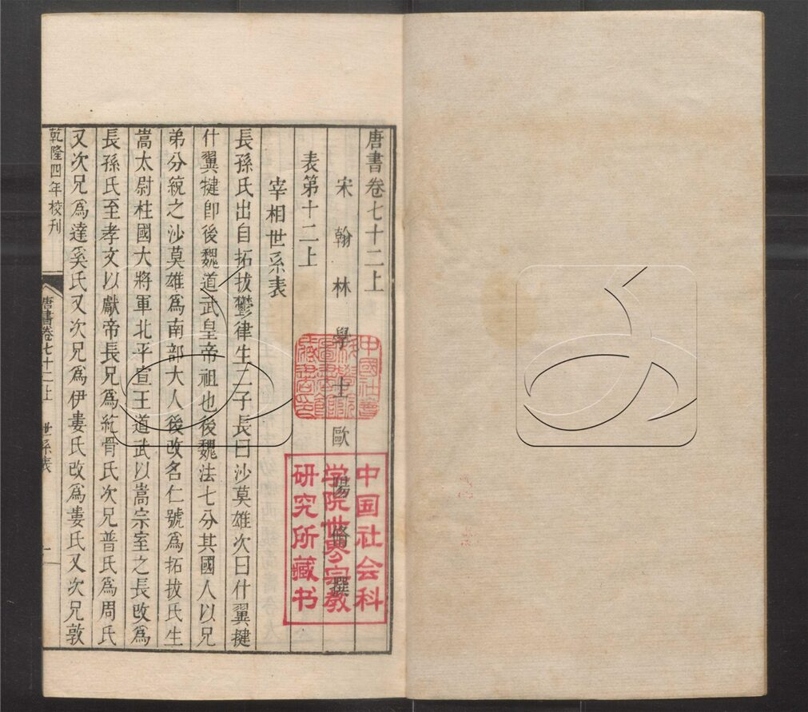 唐書卷七十二上
宋翰林學士歐陽修撰
表第十二上
宰相世系表
長孫氏出自拓拔鬱律生二子長曰沙莫雄次曰什翼犍
什翼犍卽後魏道武皇帝祖也後魏法七分其國人以兄
弟分統之沙莫雄爲南部大人後改名仁號爲拓拔氏生
嵩太尉柱國大將軍北平宣王道武以嵩宗室之長改爲
長孫氏至孝文以獻帝長兄爲紇骨氏次兄普氏爲周氏
又次兄爲達奚氏又次兄爲伊婁氏改爲婁氏又次兄敦
乾隆四年校刊
唐書卷七十二上 世系表 一
中國社會
科學院
圖書館
藏書印
中国社会科
学院世界宗教
研究所藏书